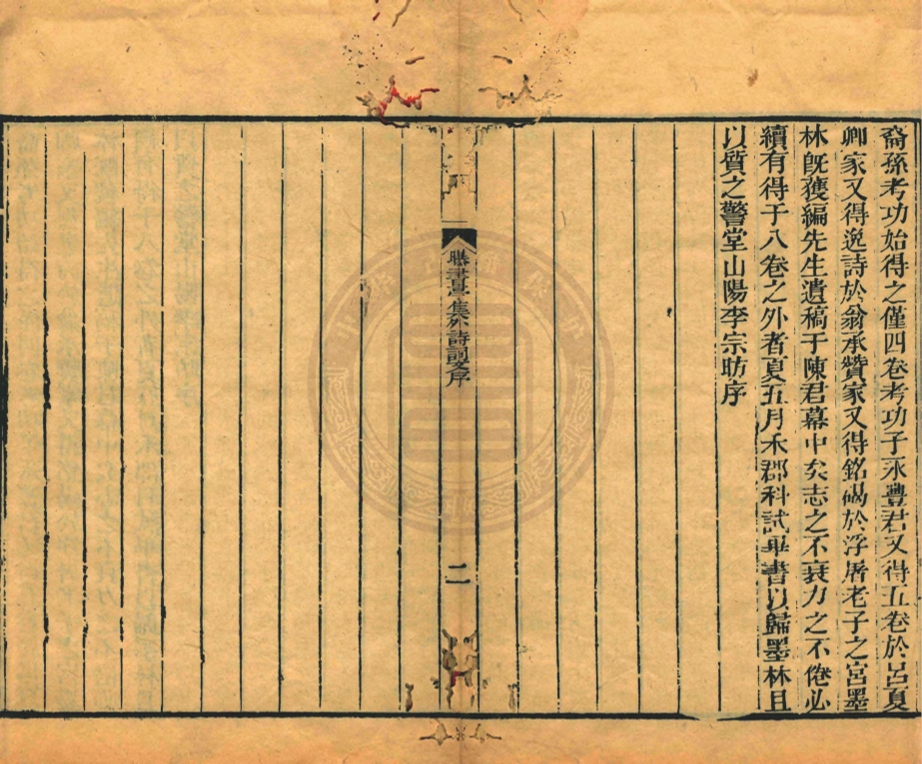 裔孫考功始得之僅四卷考功子永豐君又得五卷於呂夏
卿家又得逸詩於翁承贊家又得銘碣於浮屠老子之宮墨
林旣獲編先生遺稿于陳君幕中矣志之不衰力之不倦必
續有得于八卷之外者夏五月禾郡科試畢書以歸墨林且
以質之警堂山陽李宗昉序
曝書亭集外詩詞文序
二